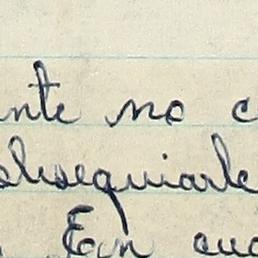 nte no c
obsequiarle
En cua